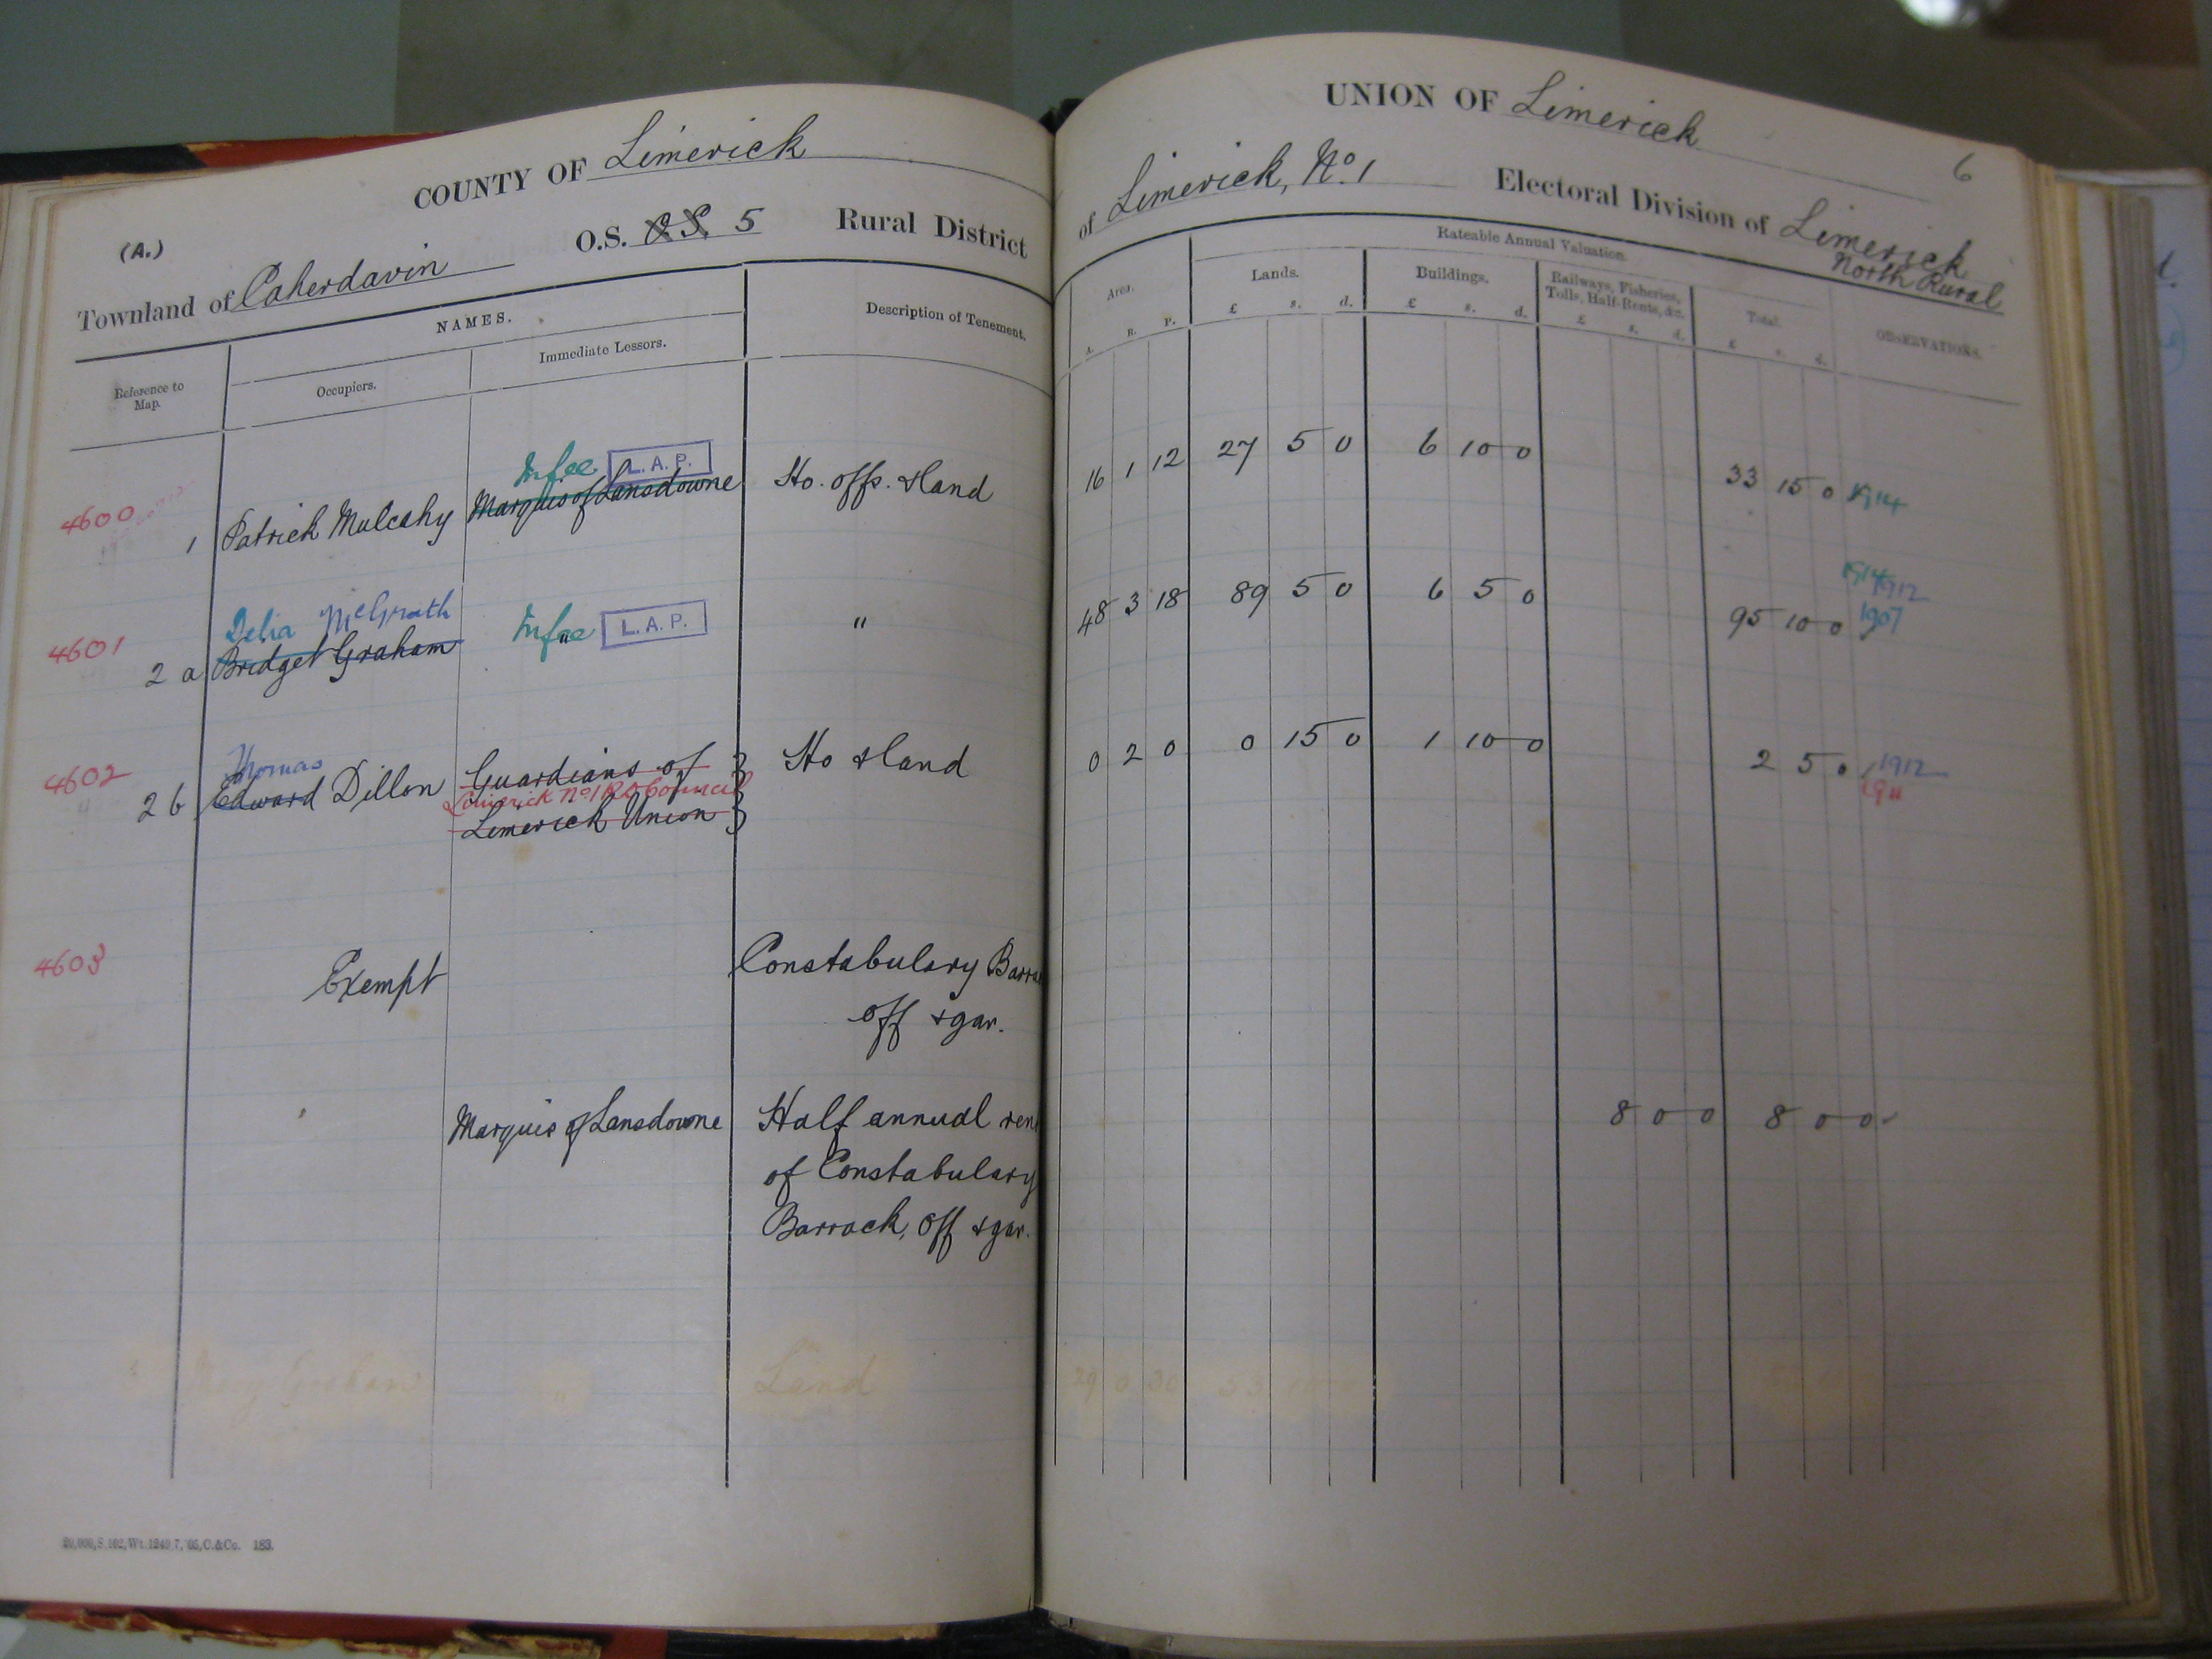 COUNTY OF Limerick
(A.)
Townland of Caherdavin O.S. O.S. 5 Rural District
Reference to Map.
NAMES.
Occupiers.
Immediate Lessors.
Description of Tenement.
4600
In fee L.A.P.
1 Patrick Mulcahy Marquis of Lansdowne Ho. offs. & land
Delia McGrath
4601
2 a Bridget Graham In fee " L.A.P. "
Thomas
4602
2 b Edward Dillon Guardians of Ho & land
Limerick No 1 R D Council
Limerick Union
4603
Exempt Constabulary Barra
off & gar.
Marquis of Lansdowne Half annual ren
of Constabulary
Barrack, off & gar.
3 Mary Graham " Land
20,000,S.162,Wt.1249,7,'05,C.&Co. 183.
UNION OF Limerick
6
of Limerick, No. 1 Electoral Division of Limerick
North Rural
Area.
A. R. P.
Rateable Annual Valuation.
Lands.
£ s. d.
Buildings.
£ s. d.
Railways, Fisheries,
Tolls, Half-Rents, &c.
£ s. d.
Total.
£ s. d.
OBSERVATIONS.
16 1 12 27 5 0 6 10 0 33 15 0 1914
48 3 18 89 5 0 6 5 0 95 10 0 1914 1912
1907
0 2 0 0 15 0 1 10 0 2 5 0 1912
1911
8 0 0 8 0 0
29 0 30 53